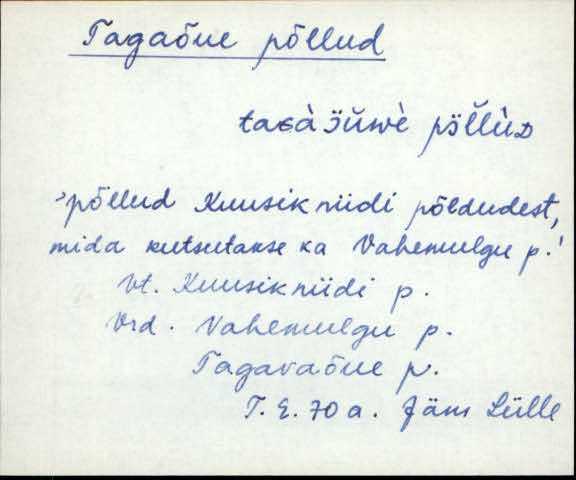 Tagaõue põllud
taɢàɜ̈ŭwè pɜ̈ľľùᴅ
'põllud Kuusikniidi põldudest,
mida kutsutakse ka Vahemulgu p.'
Vt. Kuusikniidi p.
Vrd. Vahemulgu p.
Tagavaõue p.
T. E. 70 a. Jäm Lülle